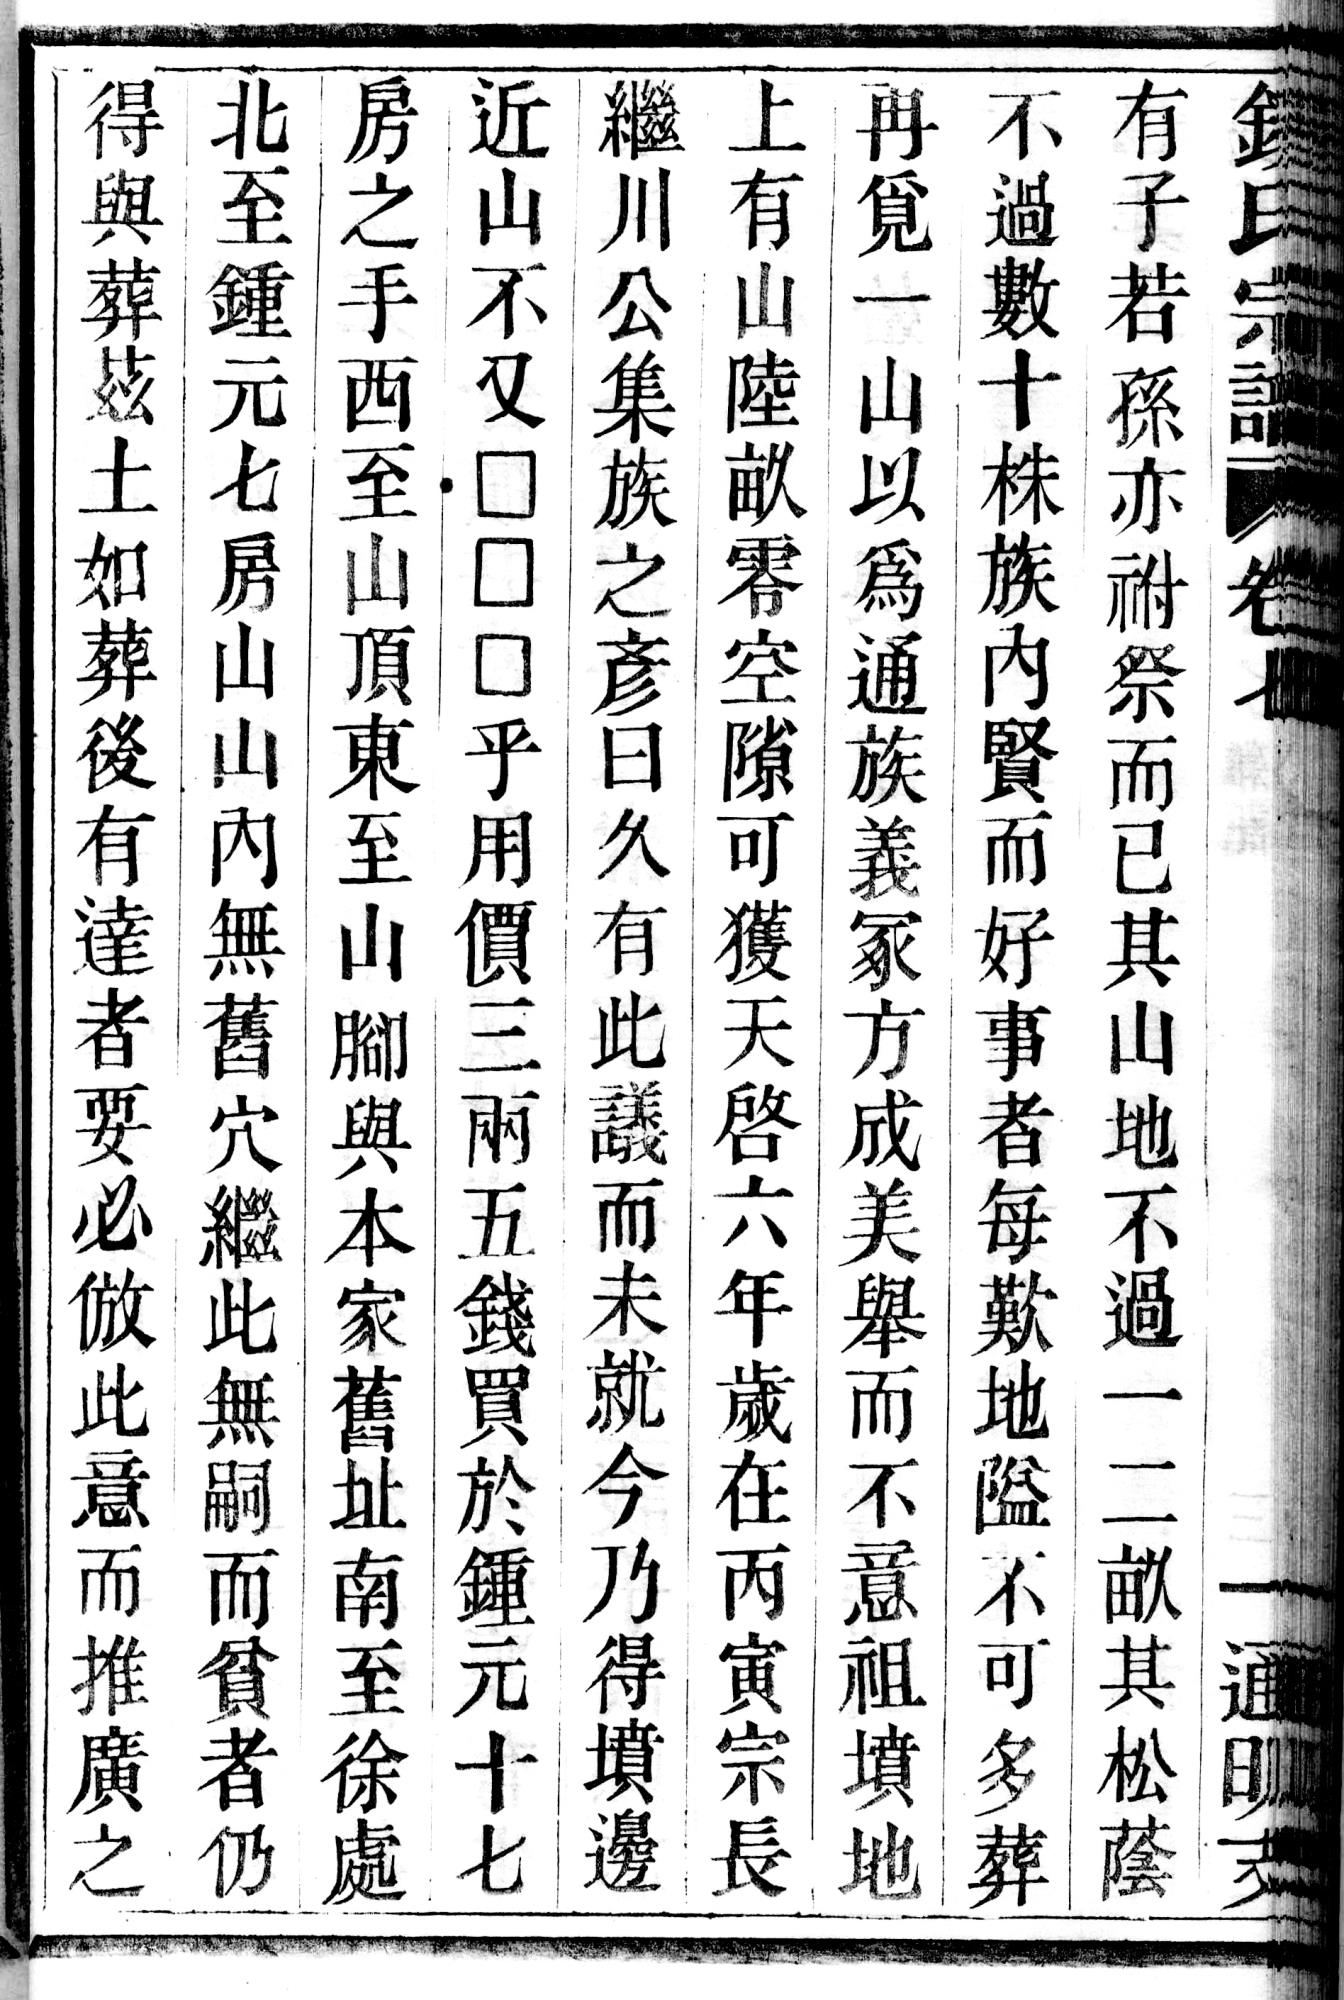 氏宗譜 卷七 一 通明
有子若孫亦祔祭而已其山地不過一二畝其松蔭
不過數十株族內賢而好事者每歎地隘不可多葬
再覓一山以爲通族義冢方成美舉而不意祖墳地
上有山陸畝零空隙可獲天啓六年歲在丙寅宗長
繼川公集族之彥曰久有此議而未就今乃得墳邊
近山不又□□□乎用價三兩五錢買於鍾元十七
房之手西至山頂東至山腳與本家舊址南至徐處
北至鍾元七房山山內無舊穴繼此無嗣而貧者仍
得與葬茲土如葬後有達者要必倣此意而推廣之